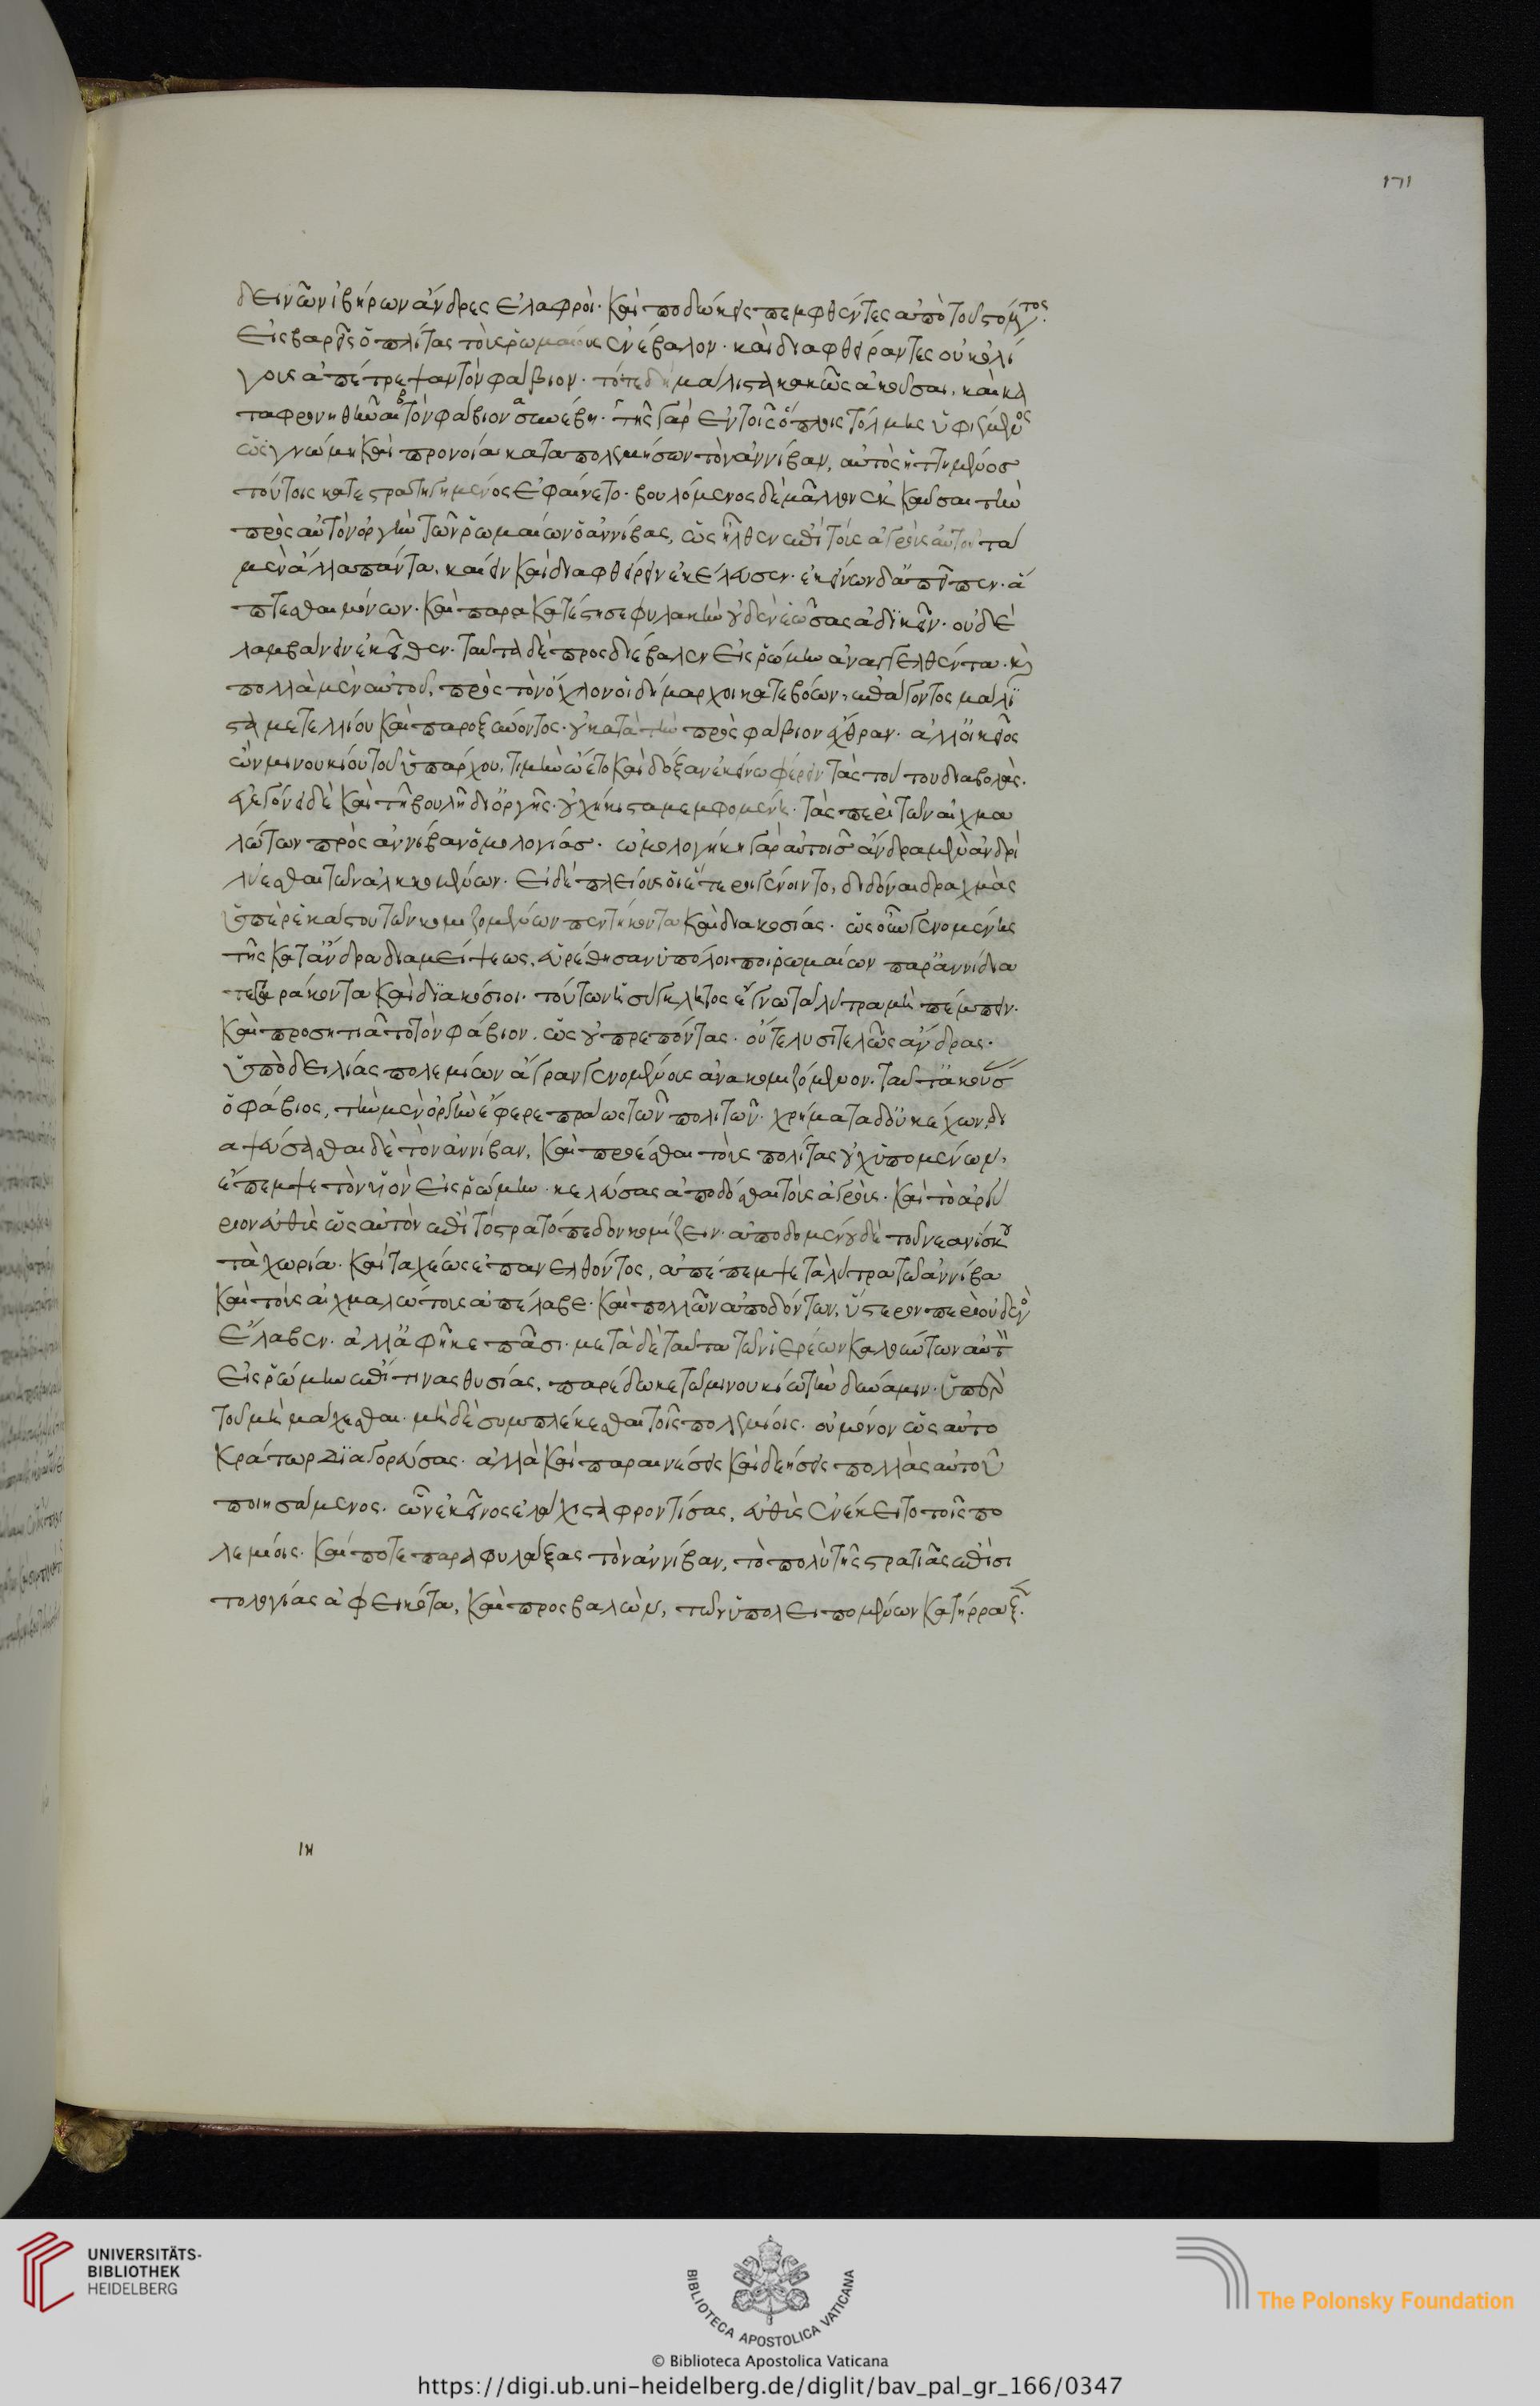 171
δεινῶν ἰβήρων ἄνδρες ἐλαφροὶ· καὶ ποδώκεις πεμφθέντες ἀπὸ τοῦ στόματος·
εἰς βαρεῖς ὁπλίτας τοὺς ῥωμαίους ἐνέβαλον· καὶ διαφθείραντες οὐκ ὀλί
γους ἀπέτρεψαν τὸν φάβιον· τότε δὴ μάλιστα κακῶς ἀκοῦσαι, καὶ κα
ταφρονηθῆναι τὸν φάβιον συνέβη· τῆς γὰρ ἐν τοῖς ὅπλοις τόλμης ὑφιέμενος
ὡς γνώμη καὶ προνοία καταπολεμήσων τὸν ἀννίβαν, αὐτὸς ἡττημένος
τούτοις κατεστρατηγημένος ἐφαίνετο· βουλόμενος δὲ μᾶλλον ἐκκαῦσαι τὴν
πρὸς αὐτὸν ὀργὴν τῶν ῥωμαίων ὁ ἀννίβας, ὡς ἦλθεν ἐπὶ τοὺς ἀγροὺς αὐτοῦ τὰ
μὲν ἄλλα πάντα, καίειν καὶ διαφθείρειν ἐκέλευσεν· ἐκείνων δ' ἀπεῖπεν· ἅ
πτεσθαι μόνων· καὶ παρακατέστησε φυλακὴν οὐδὲν ἐῶσας ἀδικεῖν· οὐδὲ
λαμβάνειν ἐκεῖθεν· ταῦτα δὲ προσδιέβαλεν εἰς ῥώμην ἀναγγελθέντα· καὶ
πολλὰ μὲν αὐτοῦ, πρὸς τὸν ὄχλον οἱ δήμαρχοι κατεβόων, ἐπάγοντος μάλι
στα μετελλίου καὶ παροξύνοντος· οὐ κατὰ τὴν πρὸς φάβιον ἔχθραν· ἀλλ' οἰκεῖος
ὢν μινουκίου τοῦ ὑπάρχου, τιμὴν ὤετο καὶ δόξαν ἐκείνω φέρειν τὰς τούτου διαβολὰς·
ἐγεγόνει δὲ καὶ τῆ βουλῆ δι' ὀργῆς· οὐχ ἥκιστα μεμφομένη· τὰς περὶ τῶν αἰχμα
λώτων πρὸς ἀννίβαν ὁμολογίας· ὡμολογήκει γὰρ αὐτοῖς ἄνδρα μὲν ἀνδρὶ
λύεσθαι τῶν ἁλισκομένων· εἰ δὲ πλείους οἱ ἕτεροι γένοιντο, διδόναι δραχμὰς
ὑπὲρ ἑκάστου τῶν κομιζομένων πεντήκοντα καὶ διακοσίας· ὡς οὖν γενομένης
τῆς κατ' ἄνδρα διαμείψεως, εὑρέθησαν ὑπόλοιποι ῥωμαίων παρ' ἀννίβα
τεσσαράκοντα καὶ διακόσιοι· τούτων ἡ σύγκλητος ἔγνω τὰ λύτρα μὴ πέμπειν·
καὶ προσητιᾶτο τὸν φάβιον· ὡς οὐ πρεπόντως· οὔτε λυσιτελῶς ἄνδρας·
ὑπὸ δειλίας πολεμίων ἄγραν γενομένους ἀνακομιζόμενον· ταῦτ' ἀκούσας
ὁ φάβιος, τὴν μὲν ὀργὴν ἔφερε πράως τῶν πολιτῶν· χρήματα δ' οὐκ ἔχων, δι
αψεύσασθαι δὲ τὸν ἀννίβαν, καὶ προέσθαι τοὺς πολίτας οὐχ ὑπομένων,
ἔπεμψε τὸν υἱὸν εἰς ῥώμην· κελεύσας ἀποδόσθαι τοὺς ἀγροὺς· καὶ τὸ ἀργύ
ριον εὐθὺς ὡς αὐτὸν ἐπὶ τὸ στρατόπεδον κομίζειν· ἀποδομένου δὲ τοῦ νεανίσκου
τὰ χωρία· καὶ ταχέως ἐπανελθόντος, ἀπέπεμψε τὰ λύτρα τῶ ἀννίβα
καὶ τοὺς αἰχμαλώτους ἀπέλαβε· καὶ πολλῶν ἀποδόντων, ὕστερον περὶ οὐδενὸς
ἔλαβεν· ἀλλ' ἀφῆκε πᾶσι· μετὰ δὲ ταῦτα τῶν ἱερέων καλούντων αὐτὸν
εἰς ῥώμην ἐπί τινας θυσίας, παρέδωκε τῶ μινουκίω τὴν δύναμιν· ὑπὲρ
τοῦ μὴ μάχεσθαι· μὴ δὲ συμπλέκεσθαι τοῖς πολεμίοις· οὐ μόνον ὡς αὐτο
κράτωρ διαγορεύσας· ἀλλὰ καὶ παραινέσεις καὶ δεήσεις πολλὰς αὐτοῦ
ποιησάμενος· ὧν ἐκεῖνος ἐλάχιστα φροντίσας, εὐθὺς ἐνέκειτο τοῖς πο
λεμίοις· καί ποτε παραφυλάξας τὸν ἀννίβαν, τὸ πολὺ τῆς στρατιᾶς ἐπὶ σι
τολογίας ἀφεικότα, καὶ προσβαλὼν, τῶν ὑπολειπομένων κατήρραξε·
ιη
UNIVERSITÄTS-
BIBLIOTHEK
HEIDELBERG
BIBLIOTECA APOSTOLICA VATICANA
The Polonsky Foundation
© Biblioteca Apostolica Vaticana
https://digi.ub.uni-heidelberg.de/diglit/bav_pal_gr_166/0347